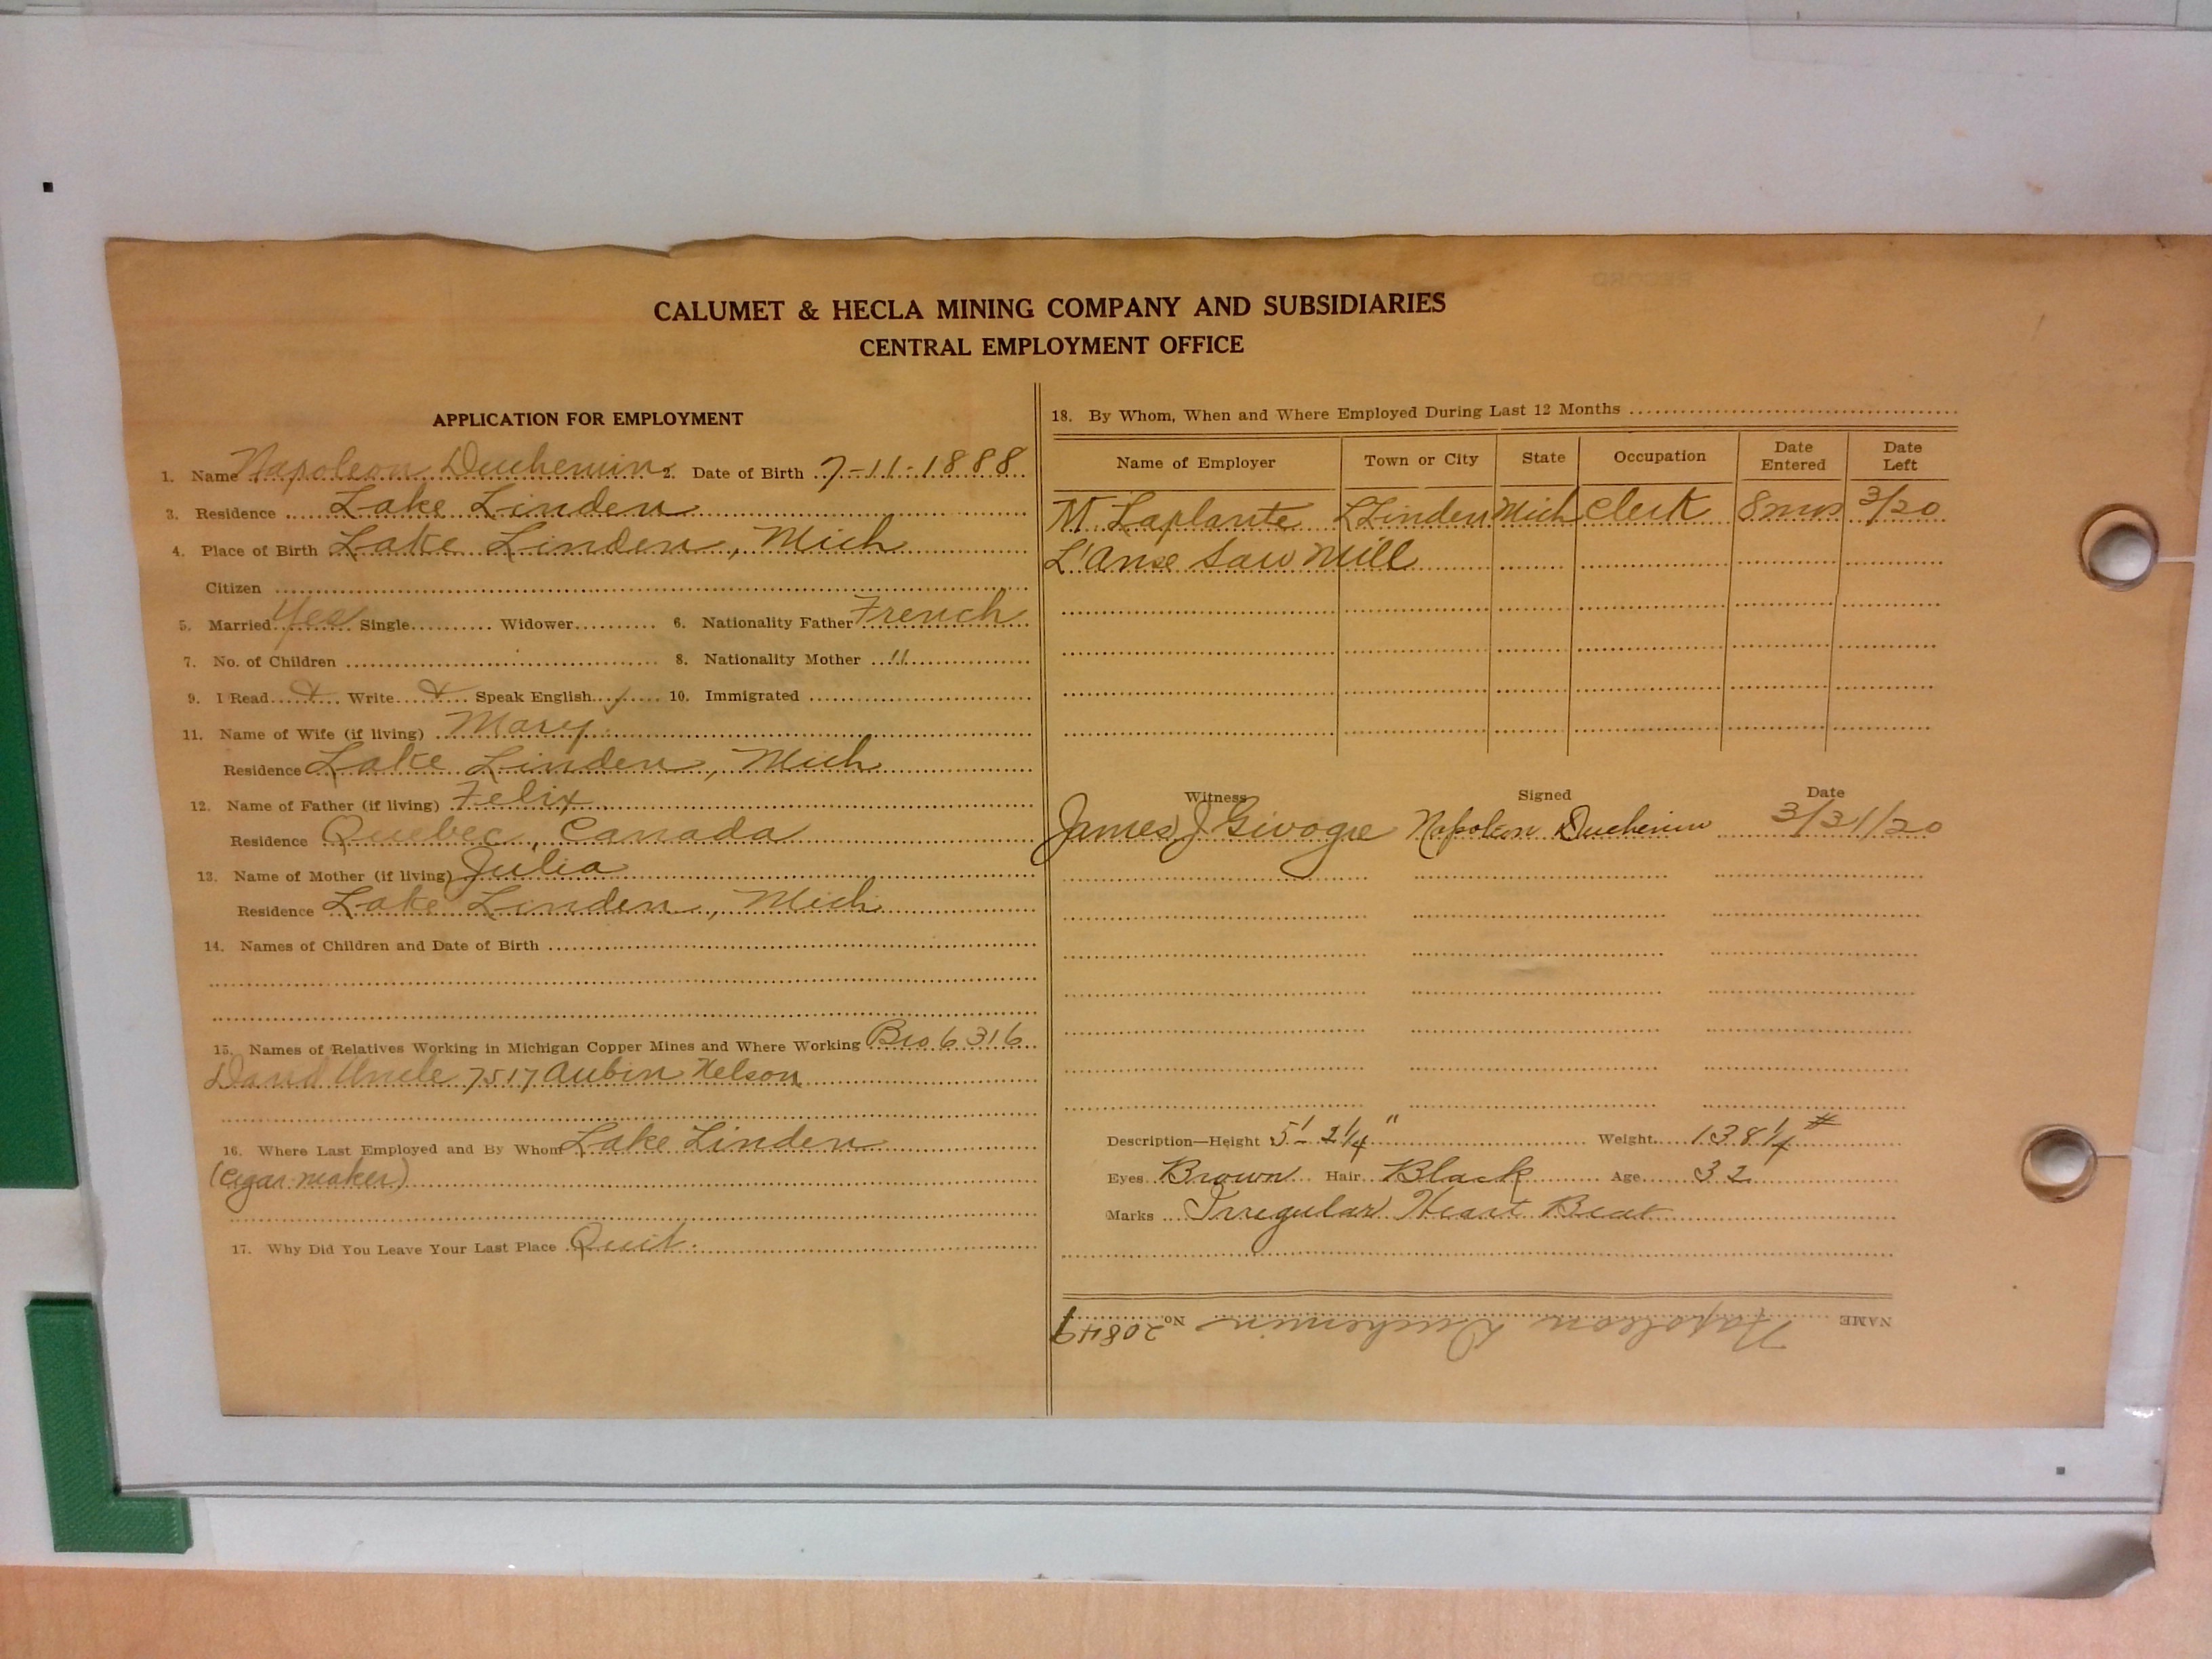 CALUMET & HECLA MINING COMPANY AND SUBSIDIARIES
CENTRAL EMPLOYMENT OFFICE
APPLICATION FOR EMPLOYMENT
1. Name Napoleon Duchemin 2. Date of Birth 7-11-1888
3. Residence Lake Linden
4. Place of Birth Lake Linden, Mich
Citizen
5. Married Yes Single Widower 6. Nationality Father French
7. No. of Children 8. Nationality Mother "
9. I Read Write Speak English 10. Immigrated
11. Name of Wife (if living) Mary
Residence Lake Linden, Mich
12. Name of Father (if living) Felix
Residence Quebec, Canada
13. Name of Mother (if living) Julia
Residence Lake Linden, Mich
14. Names of Children and Date of Birth
15. Names of Relatives Working in Michigan Copper Mines and Where Working Bro 6316
David Uncle 7517 Aubin Nelson
16. Where Last Employed and By Whom Lake Linden
(Cigar maker)
17. Why Did You Leave Your Last Place Quit
18. By Whom, When and Where Employed During Last 12 Months
Name of Employer Town or City State Occupation Date Entered Date Left
M. Laplante L Linden Mich Clerk 8 mos 3/20
L'Anse Saw Mill
Witness Signed Date
James J Napoleon Duchemin 3/31/20
Description—Height 5' 2 1/4" Weight 138 1/4 #
Eyes Brown Hair Black Age 32
Marks Irregular Heart Beat
NAME Napoleon Duchemin No. 20849